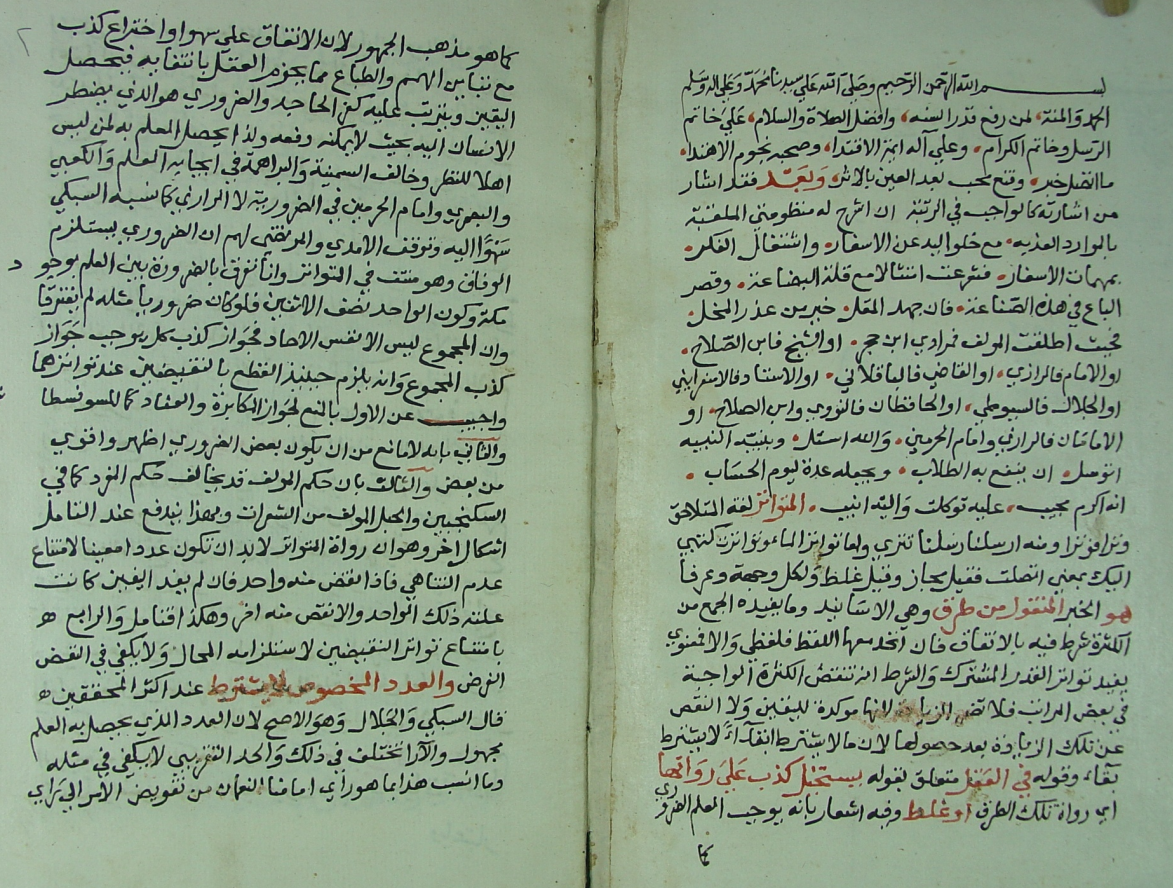 بسم الله الرحمن الرحيم وصلى الله على سيدنا محمد وعلى اله وسلم
الحمد والمنة، لمن رفع قدر السنه، وافضل الصلاة والسلام، على خاتم
الرسل وخاتم الكرام، وعلى آله اهل الاقتدا، وصحبه نجوم الاهتدا،
ما اتصل خبر، وقنع محب بعد العين بالاثر، وبعد فقد اشار
من اشارته كالواجب في الرتبة ان اشرح له منظومتي الملقبة
بالموارد العذبه، مع خلو اليد عن الاسفار، واشتغال الفكر،
بمهمات الاسفار، فشرعت امتثالا مع قلة البضاعة، وقصر
الباع في هذه الصناعة، فان جهد المقل، خير من عذر المخل،
بحيث اطلقت المولف فمرادي ابن حجر، او الشيخ فابن الصلاح،
او الامام فالرازي، او القاضي فالباقلاني، او الاستاد فالاسفرايني
او الجلال فالسيوطي، او الحافظان فالنووي وابن الصلاح، او
الامامان فالرازي وامام الحرمين، والله اسئل، وبنبيه النبيه
اتوسل، ان ينفع به الطلاب، ويجعله عدة ليوم الحساب،
انه اكرم مجيب، عليه توكلت واليه انيب، المتواتر لغة التلاحق
وترا فوترا ومنه ارسلنا رسلنا تترى واما تواتر الماء وتواترت كتبي
اليك بمعنى اتصلت فقيل مجاز وقيل غلط ولكل وجهة وعرفا
هو الخبر المنقول من طرق وهي الاسانيد وما يفيده الجمع من
الكثرة شرط فيه بالاتفاق فان اتحد معها اللفظ فلفظي والا فمعنوي
يفيد تواتر القدر المشترك والشرط ان تنقص الكثرة الواجبة
في بعض المراتب فلا تضر الزيادة لانها موكدة لليقين ولا النقص
عن تلك الزيادة بعد حصولها لان ما لا يشترط ابتداء لا يشترط
بقاء وقوله في العقل متعلق بقوله يستحيل كذب على رواتها
اي رواة تلك الطرق او غلط وفيه اشعار بانه يوجب العلم الضروري
كما
كما هو مذهب الجمهور لان الاتفاق على سهو او اختراع كذب
مع تباين الهمم والطباع مما يجزم العقل بانتفايه فيحصل
اليقين ويترتب عليه كفر الجاحد والضروري هو الذي يضطر
الانسان اليه بحيث لا يمكنه دفعه ولذا يحصل العلم به لمن ليس
اهلا للنظر وخالف السمنية والبراهمة في ايجابه العلم والكعبي
والبصري وامام الحرمين في الضرورية لا الرازي كما نسبه السبكي
سهوا اليه وتوقف الآمدي والمرتضى لهم ان الضروري يستلزم
الوفاق وهو منتف في التواتر وانا نفرق بالضرورة بين العلم بوجود
مكة وكون الواحد نصف الاثنين فلو كان ضروريا مثله لم يفترقا
وان المجموع ليس الا نفس الاحاد فجواز كذب كل يوجب جواز
كذب المجموع وانه يلزم حينئذ القطع بالنقيضين عند تواترهما
واجيب عن الاول بالمنع لجواز المكابرة والعناد كما للسوفسطا
والثاني بانه لا مانع من ان يكون بعض الضروري اظهر واقوى
من بعض والثالث بان حكم المولف قد يخالف حكم المفرد كما في
السكنجبين والحبل المولف من الشعرات وبهذا يندفع عند التامل
اشكال اخر وهو ان رواة المتواتر لا بد ان تكون عددا معينا لامتناع
عدم التناهي فاذا نقص منه واحد فان لم يفد اليقين كانت
علته ذلك الواحد والا نقص منه اخر وهكذا فتامل والرابع
بامتناع تواتر النقيضين لاستلزامه المحال ولا يكفي في النقض
الفرض والعدد المخصوص لا يشترط عند اكثر المحققين
قال السبكي والجلال وهو الاصح لان العدد الذي يحصل به العلم
مجهول والآرا تختلف في ذلك والحد التقريبي لا يكفي في مثله
وما انسب هذا بما هو راي امامنا النعمان من تفويض الامر الى راي